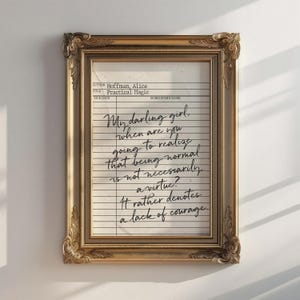 Hoffman, Alice
Practical Magic
My darling girl,
when are you
going to realize
that being normal
is not necessarily
a virtue?
It rather denotes
a lack of courage.